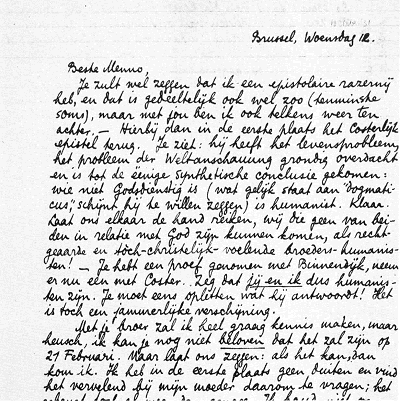 Brussel, Woensdag 12.
Beste Menno,
Je zult wel zeggen dat ik een epistolaire razernij
heb, en dat is gedeeltelijk ook wel zoo (tenminste
soms), maar met jou ben ik ook telkens weer ten
achter. — Hierbij dan in de eerste plaats het Costerlijk
epistel terug. Je ziet: hij heeft het levensprobleem,
het probleem der Weltanschauung grondig overdacht
en is tot de eenige synthetische conclusie gekomen:
wie niet Godsdienstig is (wat gelijk staat aan "dogmati-
cus", schijnt hij te willen zeggen) is humanist. Klaar.
Laat ons elkaar de hand reiken, wij die geen van bei-
den in relatie met God zijn kunnen komen, als recht-
geaarde en tòch-christelijk-voelende broeders-humanis-
ten! — Je hebt een proef genomen met Binnendijk, neem
er nu een met Coster. Zeg dat jij en ik dus humanis-
ten zijn. Je moet eens opletten wat hij antwoordt! Het
is toch een jammerlijke verschijning.
Met je broer zal ik heel graag kennis maken, maar
heusch, ik kan je nog niet beloven dat het zal zijn op
21 Februari. Maar laat ons zeggen: als het kan, dan
kom ik. Ik heb in de eerste plaats geen duiten en vind
het vervelend bij mijn moeder daarom te vragen; het